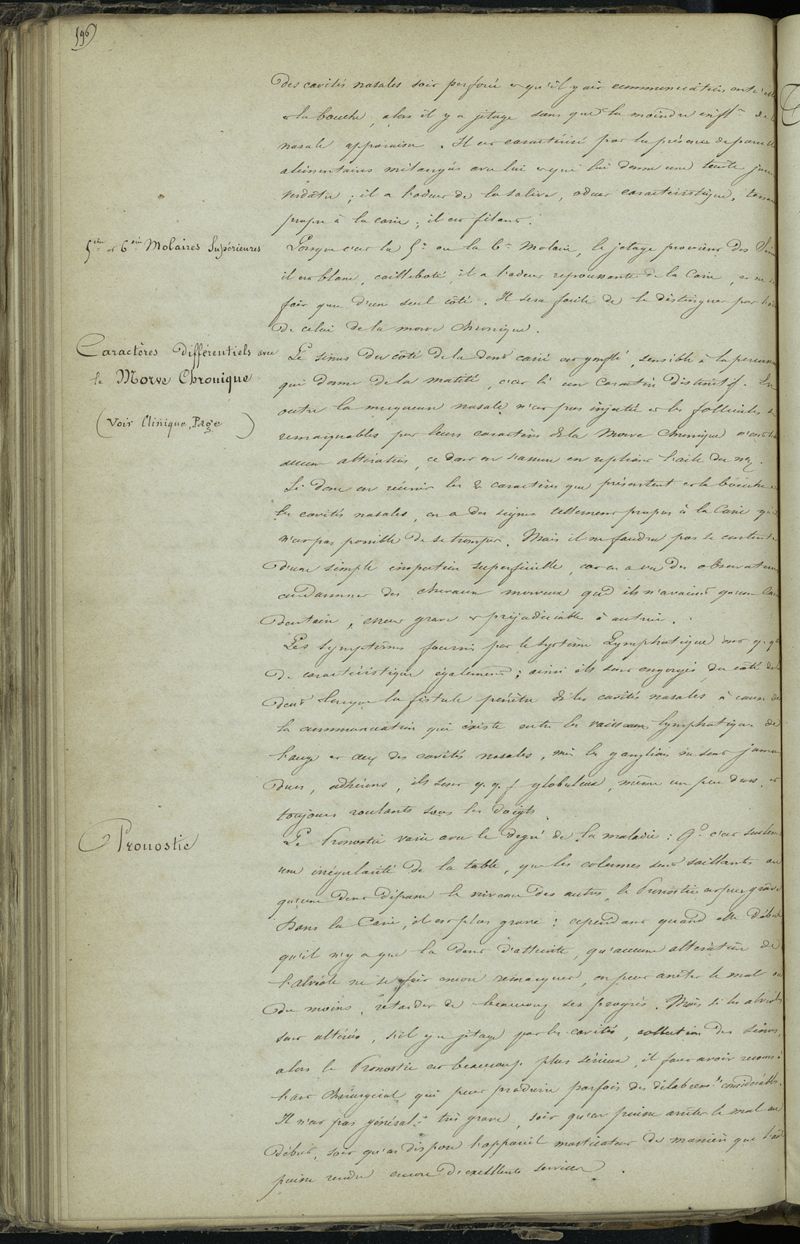 196
des cavités nasales soit perforé et qu'il y ait communication entre elle
et la bouche, alors il y a jetage sans que la moindre infl.on de la
nasale apparaisse. Il est caractérisé par la présence de parcelles
alimentaires mélangés avec lui et que lui donne une teinte jaune
verdâtre ; il a l'odeur de la salive, odeur caractéristique,
propre à la carie ; il est fétide.
5ième et 6ième Molaires Supérieures
Lorsque c'est la 5e ou la 6e Molaire, le jetage provient des Sinus
il est blanc, cailleboté, il a l'odeur repoussante de la Carie, et ne se
fait que d'un seul côté. Il sera facile de le distinguer par là
de celui de la morve chronique.
Caractères Différentiels avec
la Morve Chronique
(Voir Clinique, Page )
Le sinus du côté de la dent carié est gonflé, sensible à la percussion
qui donne de la matité, c'est là un Caractère Distinctif. En
outre la muqueuse nasale n'est pas injectée et les follicules si
remarquables par leurs caractères ds la Morve Chronique n'ont
aucune altération, ce dont on s'assure en repliant l'aile du nez.
Si donc on réunit les 2 caractères que présentent et la bouche et
les cavités nasales, on a des signes tellement propres à la Carie qu'il
n'est pas possible de se tromper. Mais il ne faudra pas se contenter
d'une simple inspection superficielle, car on a vu des observateurs
condamner des chevaux morveux qd ils n'avaient qu'une Carie
dentaire, erreur grave et préjudiciable à autrui.
Les symptômes fournis par le système Lymphatique ont q. q.
de caractéristique également ; ainsi ils sont engorgés du côté de la
dent lorsque la fistule pénètre ds les cavités nasales à cause de
la communication qui existe entre les vaisseaux lymphatiques de
l'auge et ceux des cavités nasales, mais les ganglions ne sont jamais
durs, adhérens, ils sont q. q. f. globuleux, même un peu durs, et
toujours roulants sous les doigts.
Pronostic
Le Pronostic varie avec le degré de la maladie : Qd c'est seulement
une irrégularité de la table, que les colonnes sont saillantes ou
qu'une dent dépasse le niveau des autres, le Pronostic est peu grave
Dans la Carie, il est plus grave : cependant quand elle débute
qu'il n'y a que la dent d'atteinte, qu'aucune altération de
l'alvéole ne se fait encore remarquer, on peut arrêter le mal ou
du moins, retarder de beaucoup ses progrès. Mais si les alvéoles
sont altérés, s'il y a jetage par les cavités, collection des sinus,
alors le Pronostic est beaucoup plus sérieux, il faut avoir recours à
l'art Chirurgical qui peut produire parfois des délabremts considérables.
Il n'est pas général.t très grave, soit qu'on puisse arrêter le mal au
début, soit qu'on dispose l'appareil masticateur de manière que l'animal
puisse rendre encore d'excellents services.